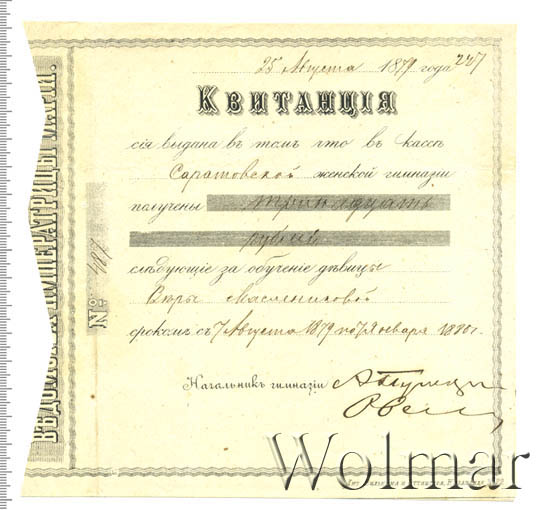 25 Августа 1879 года 227
КВИТАНЦІЯ
сія выдана въ томъ что въ кассѣ
Саратовской женской гимназіи
получены тринадцать
рублей
слѣдующіе за обученіе дѣвицы
Вѣры
срокомъ съ 7 Августа 1879 по 7 Января 1880 г.
Начальникъ гимназіи
№ 487
ИМПЕРАТРИЦЫ МАРІИ.
Wolmar